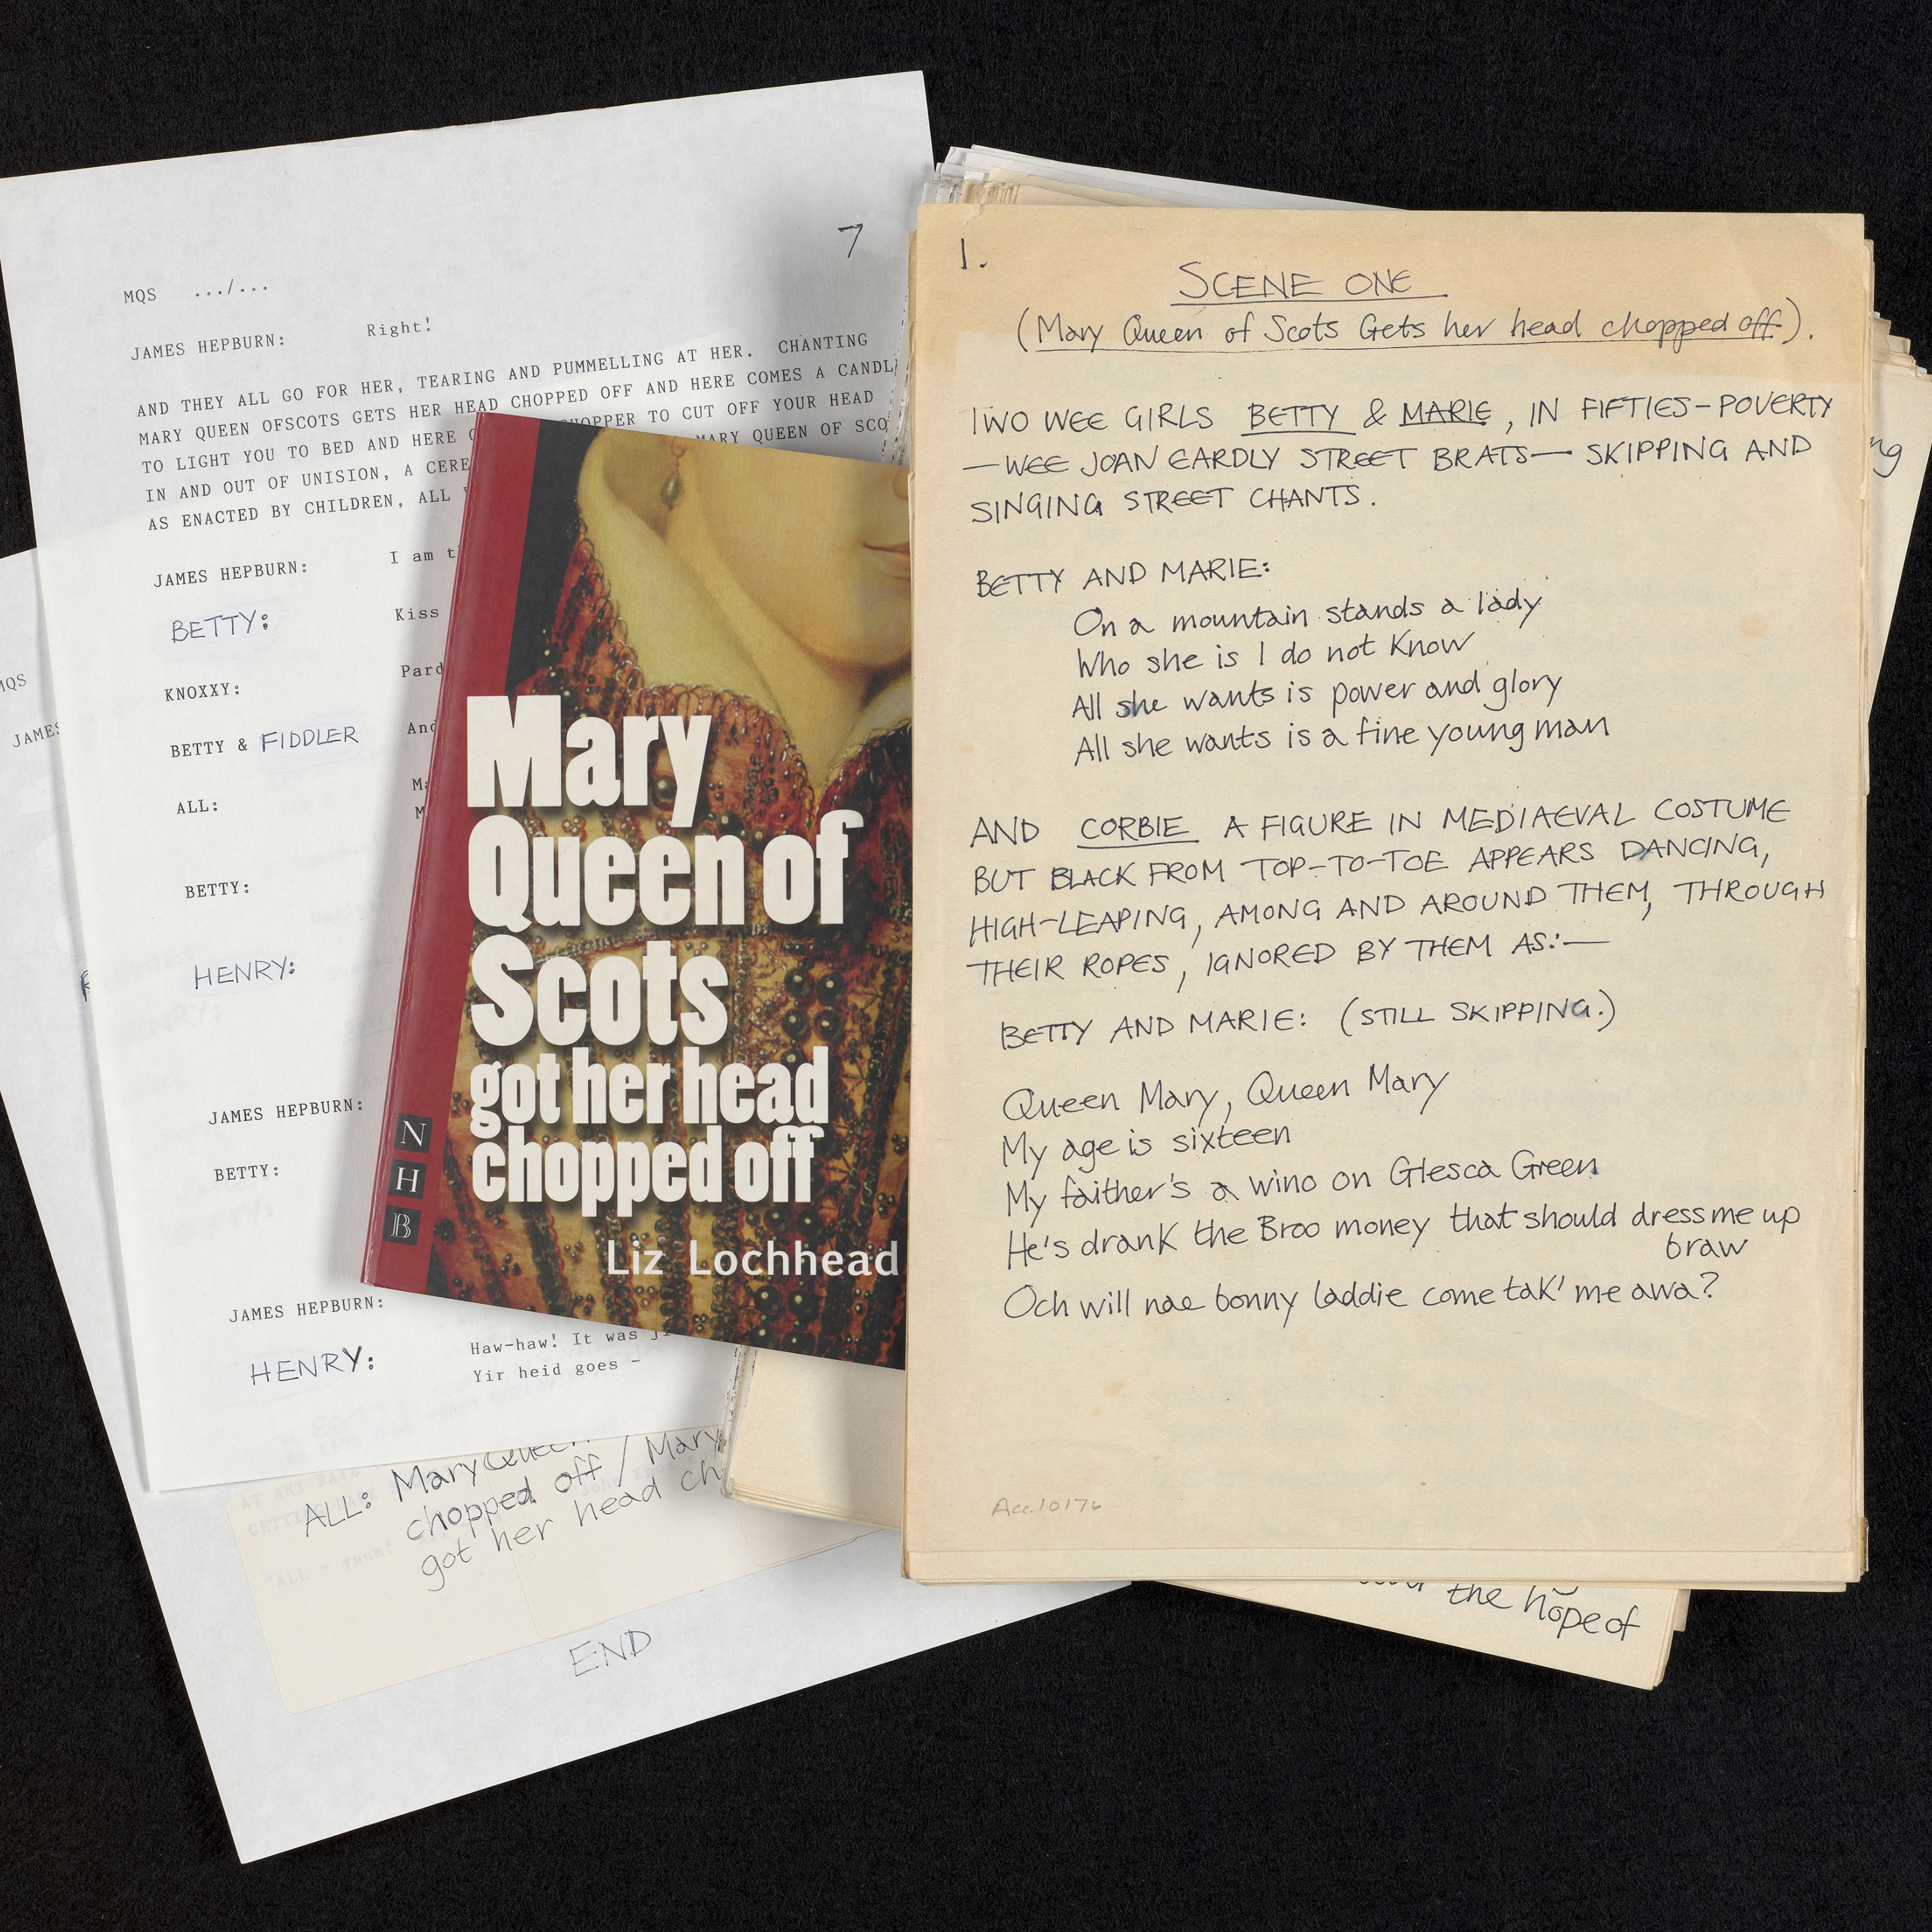 7
MQS .../...
JAMES HEPBURN: Right!
AND THEY ALL GO FOR HER, TEARING AND PUMMELLING AT HER. CHANTING
MARY QUEEN OFSCOTS GETS HER HEAD CHOPPED OFF AND HERE COMES A CANDL
TO LIGHT YOU TO BED AND HERE CHOPPER TO CUT OFF YOUR HEAD
IN AND OUT OF UNISION, A CERE MARY QUEEN OF SCO
AS ENACTED BY CHILDREN, ALL
JAMES HEPBURN: I am
BETTY: Kiss
KNOXXY: Pard
BETTY & FIDDLER And
ALL:
BETTY:
HENRY:
JAMES HEPBURN:
BETTY:
JAMES HEPBURN:
Haw-haw! It was
HENRY: Yir heid goes -
MQS
JAMES
ALL: Mary Queen
chopped off / Mary
got her head ch
END
Mary
Queen of
Scots
got her head
chopped off
Liz Lochhead
N
H
B
1.
SCENE ONE
(Mary Queen of Scots Gets her head chopped off).
TWO WEE GIRLS BETTY & MARIE, IN FIFTIES-POVERTY
—WEE JOAN EARDLY STREET BRATS— SKIPPING AND
SINGING STREET CHANTS.
BETTY AND MARIE:
On a mountain stands a lady
Who she is I do not Know
All she wants is power and glory
All she wants is a fine young man
AND CORBIE A FIGURE IN MEDIAEVAL COSTUME
BUT BLACK FROM TOP-TO-TOE APPEARS DANCING,
HIGH-LEAPING, AMONG AND AROUND THEM, THROUGH
THEIR ROPES, IGNORED BY THEM AS:—
BETTY AND MARIE: (STILL SKIPPING.)
Queen Mary, Queen Mary
My age is sixteen
My faither's a wino on Glesca Green
He's drank the Broo money that should dress me up
braw
Och will nae bonny laddie come tak' me awa?
Acc.10176
the hope of